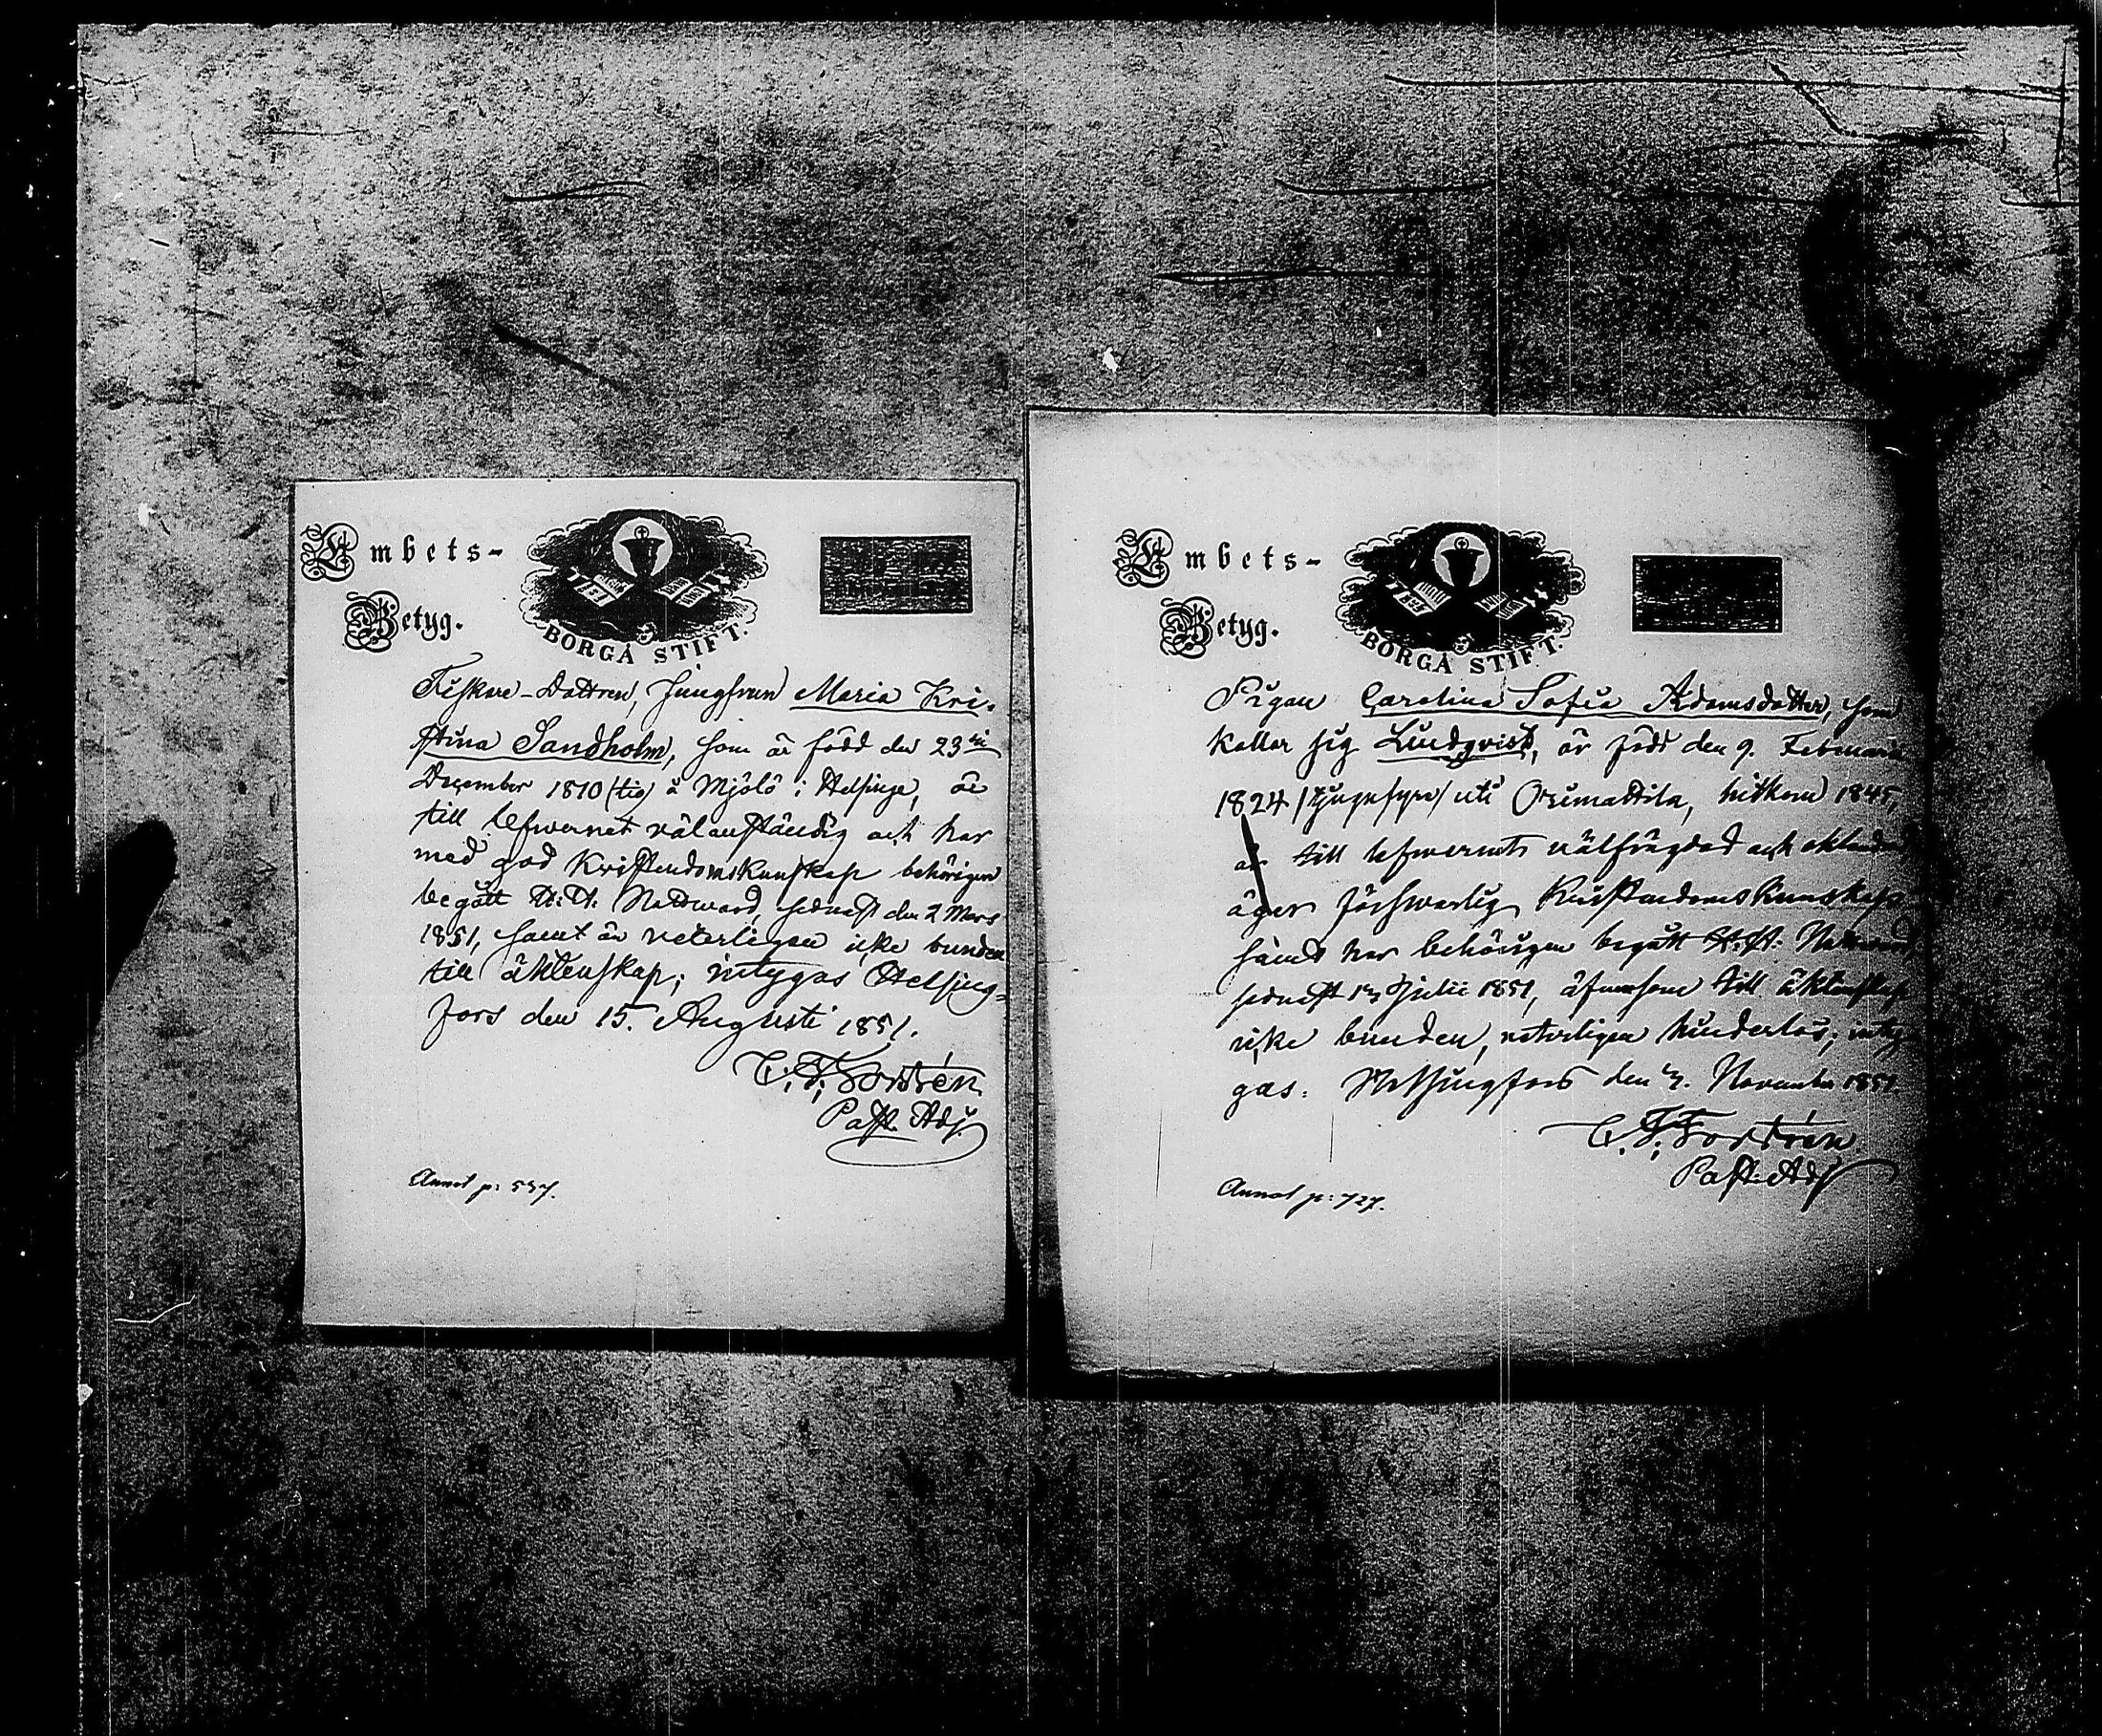 Embets-
Betyg.
BORGÅ STIFT.
Fiskare-Dottren, Jungfrun Maria Kri-
stina Sandholm, som är född den 23
December 1810 (tio) å Mjölö i Helsinge, är
till lefvernet välanständig och har
med god Kristendomskunskap behörigen
begått H:H. Nattvard, sednast den 2 Mars
1851, samt är veterligen icke bunden
till äktenskap; intygas Helsing-
fors den 15. Augusti 1851.
C. F. Forstrén
Past. Adj.
Annot p: 557.
Embets-
Betyg.
BORGÅ STIFT.
Pigan Carolina Sofia Adamsdotter, som
kallar sig Lindqvist, är född den 9. Februarii
1824 /tjugufyra/ uti Orimattila, hitkom 1845,
är till lefvernet välfrägdad och oklandrad
äger försvarlig Kristendoms Kunskap
samt har behörigen begått H.H. Nattvard,
sednast Julii 1851, äfvensom till äktenskap
icke bunden, veterligen hinderlös; inty-
gas: Helsingfors den Novembr 1851
C. F. Forstrén
Past. Adj
Annot p: 727.